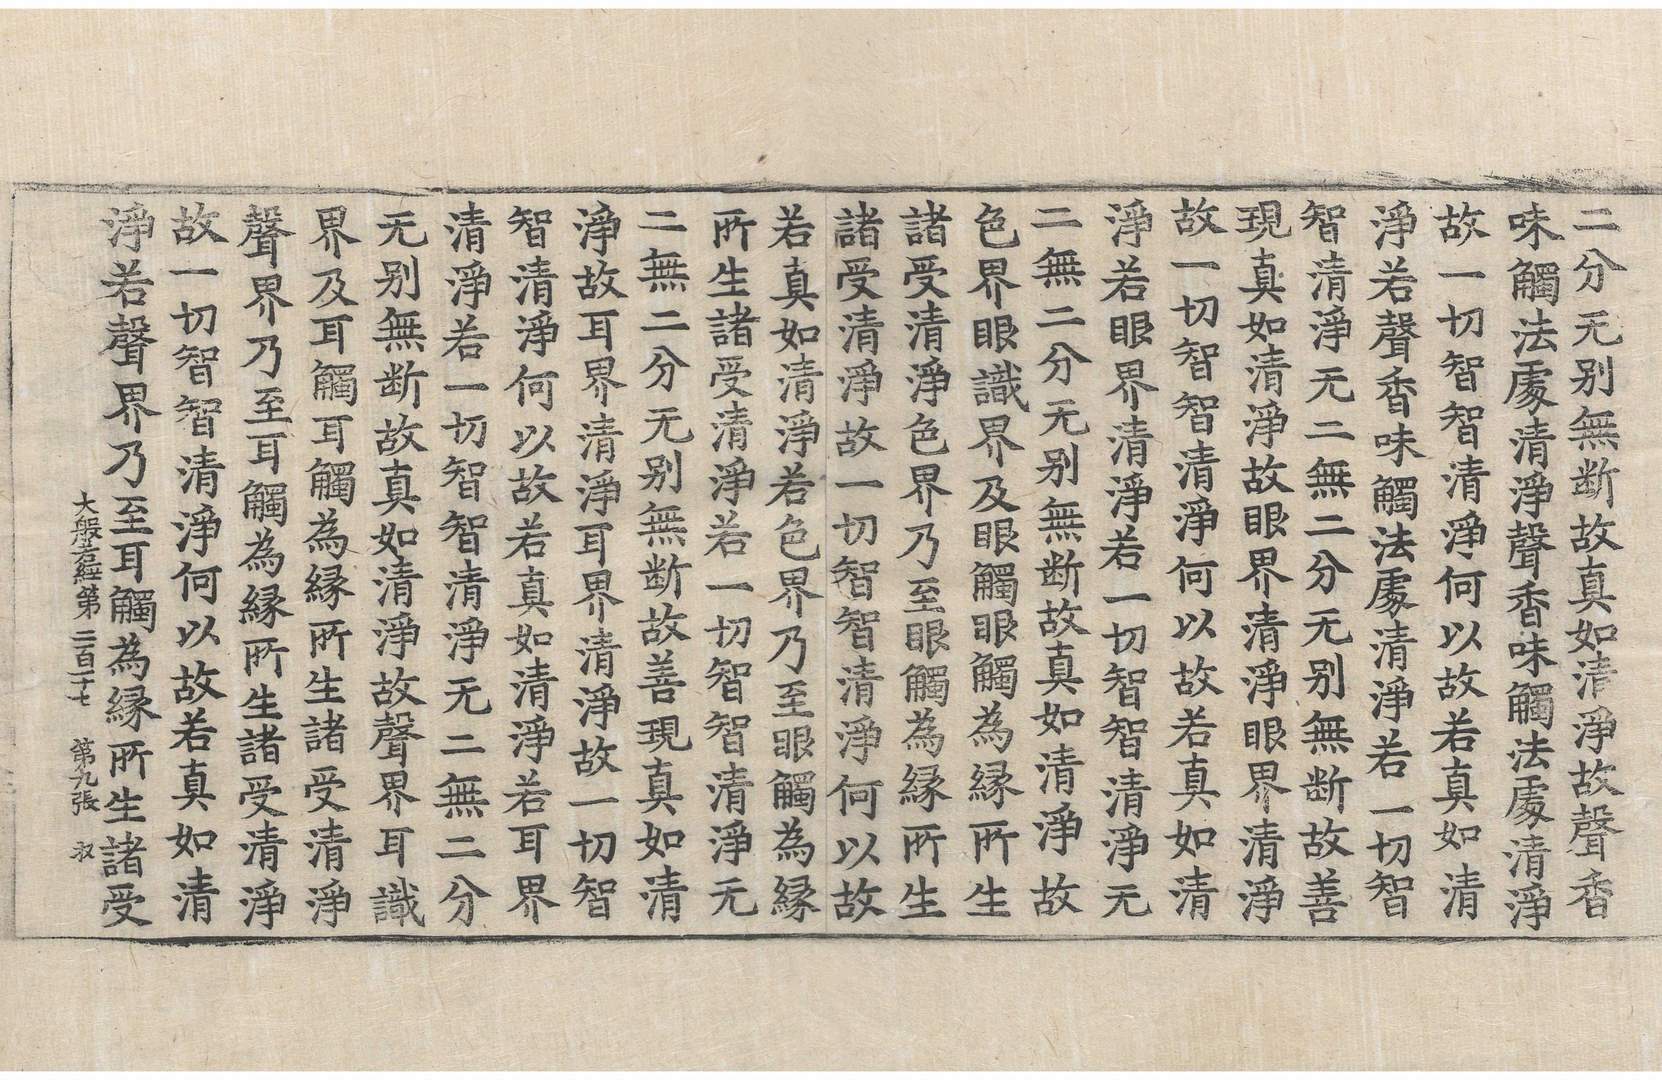 二分无别無断故真如清淨故聲香
味觸法處清淨聲香味觸法處清淨
故一切智智清淨何以故若真如清
淨若聲香味觸法處清淨若一切智
智清淨无二無二分无别無断故善
現真如清淨故眼界清淨眼界清淨
故一切智智清淨何以故若真如清
淨若眼界清淨若一切智智清淨无
二無二分无别無断故真如清淨故
色界眼識界及眼觸眼觸為縁所生
諸受清淨色界乃至眼觸為縁所生
諸受清淨故一切智智清淨何以故
若真如清淨若色界乃至眼觸為縁
所生諸受清淨若一切智智清淨无
二無二分无别無断故善現真如清
淨故耳界清淨耳界清淨故一切智
智清淨何以故若真如清淨若耳界
清淨若一切智智清淨无二無二分
无别無断故真如清淨故聲界耳識
界及耳觸耳觸為縁所生諸受清淨
聲界乃至耳觸為縁所生諸受清淨
故一切智智清淨何以故若真如清
淨若聲界乃至耳觸為縁所生諸受
大般若經第二百二十七 第九張 叔